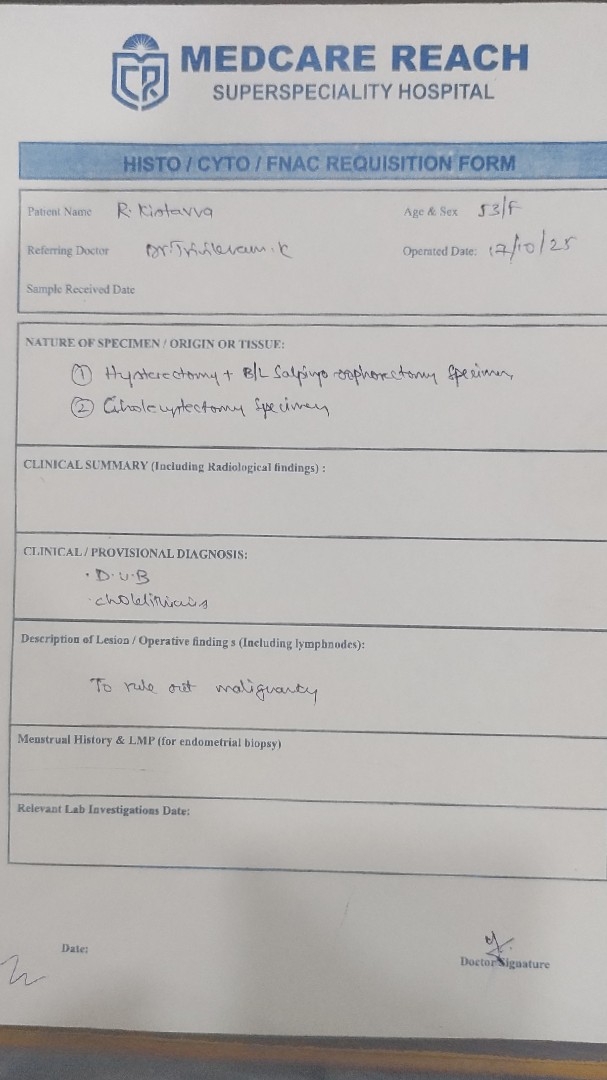 MEDCARE REACH
SUPERSPECIALITY HOSPITAL
HISTO / CYTO / FNAC REQUISITION FORM
Patient Name R. Kistavva Age & Sex 53/F
Referring Doctor Dr. K Operated Date: 17/10/25
Sample Received Date
NATURE OF SPECIMEN / ORIGIN OR TISSUE:
① Hysterectomy + B/L Salpingo oophorectomy Specimen
② Cholecystectomy Specimen
CLINICAL SUMMARY (Including Radiological findings) :
CLINICAL / PROVISIONAL DIAGNOSIS:
· D.U.B
· cholelithiasis
Description of Lesion / Operative finding s (Including lymphnodes):
To rule out malignancy
Menstrual History & LMP (for endometrial biopsy)
Relevant Lab Investigations Date:
Date:
Doctor Signature